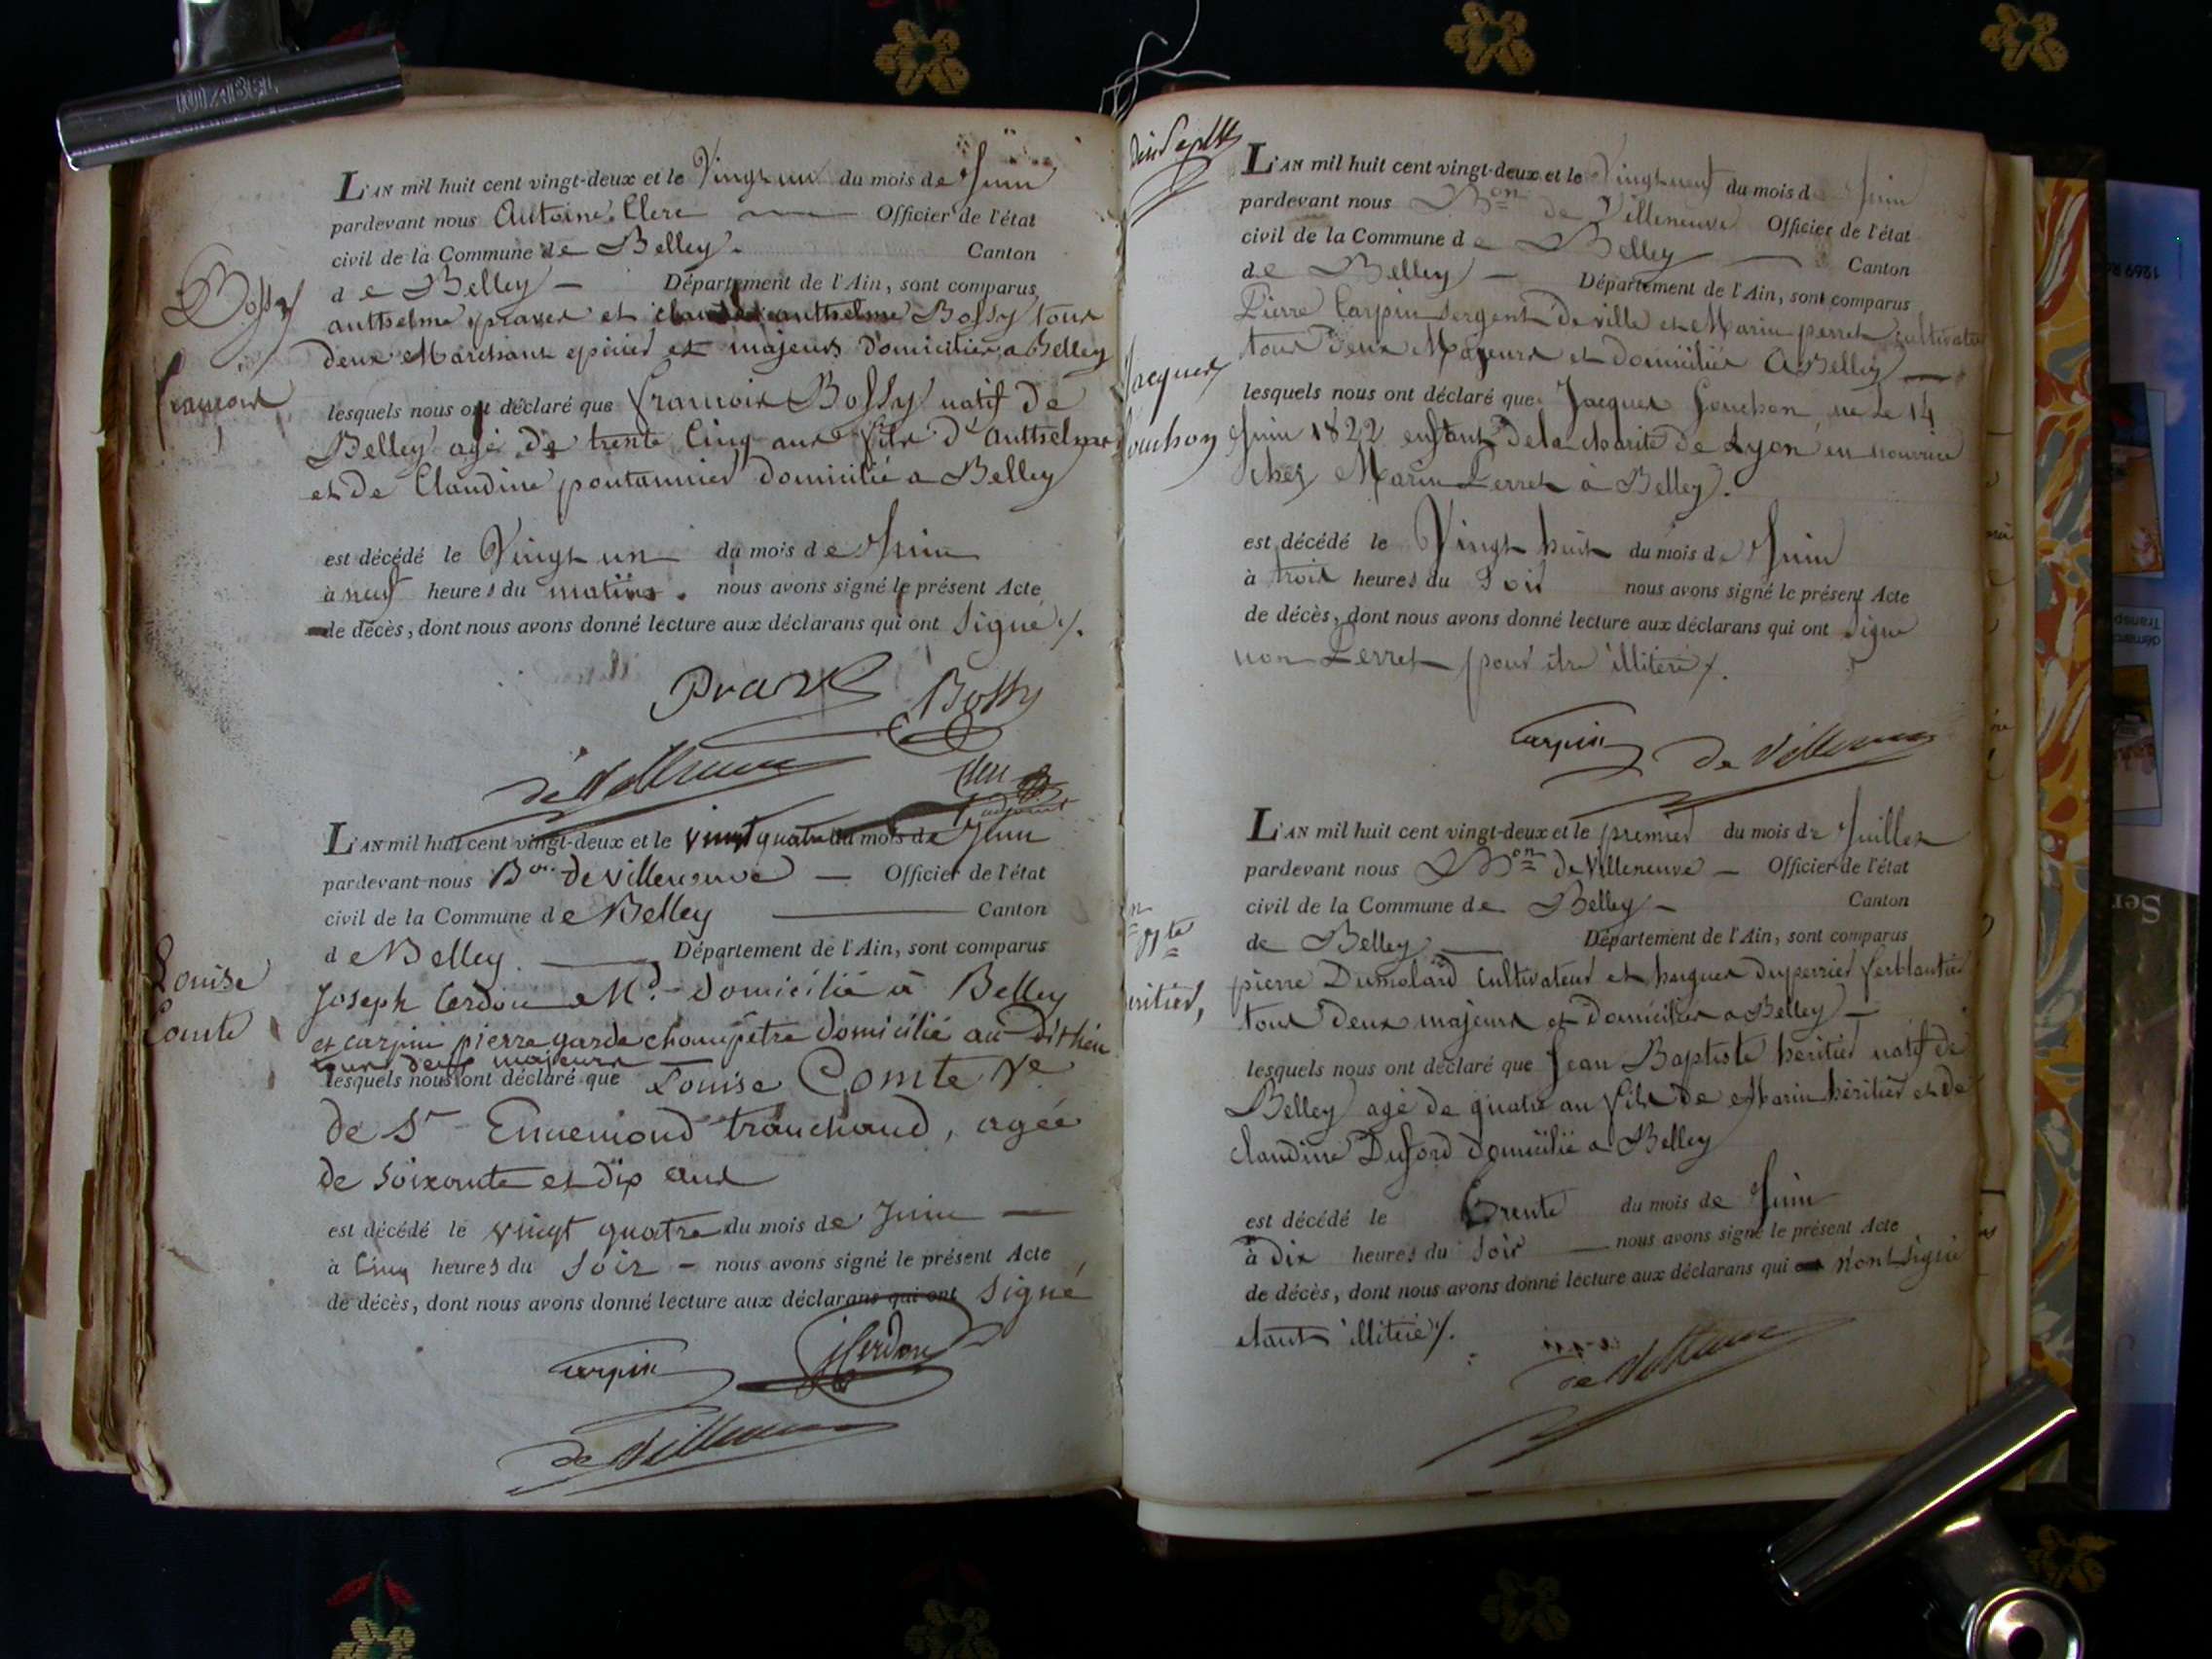 L'AN mil huit cent vingt-deux et le Vingt un du mois de Juin
pardevant nous Antoine Clerc Officier de l'état
civil de la Commune de Belley. Canton
de Belley Département de l'Ain, sont comparus
anthelme et anthelme Bossy tous
deux Marchand epicier et majeurs domiciliés a Belley
lesquels nous ont déclaré que françois Bossy natif de
Belley agé de trente Cinq ans fils d'anthelme
et de Claudine pontannier domicilié a Belley
est décédé le Vingt un du mois de Juin
à neuf heures du matin. nous avons signé le présent Acte
de décès, dont nous avons donné lecture aux déclarans qui ont Signé /.
Bossy
françois
Bossy
de Villeneuve
adjoint
L'AN mil huit cent vingt-deux et le vingt quatre du mois de Juin
pardevant nous Bon. de villeneuve Officier de l'état
civil de la Commune de Belley Canton
de Belley. Département de l'Ain, sont comparus
Joseph Cerdon Md. domicilié à Belley
et carpin pierre garde champêtre domicilié au dit lieu
tous deux majeurs
lesquels nous ont déclaré que Louise Comte Ve
de Sr Ennemond tranchand, agée
de soixante et dix ans
est décédé le vingt quatre du mois de Juin
à Cinq heures du Soir nous avons signé le présent Acte
de décès, dont nous avons donné lecture aux déclarans qui ont signé
Louise
Comte
carpin JCerdon
de Villeneuve
L'AN mil huit cent vingt-deux et le Vingt neuf du mois de Juin
pardevant nous Bon de Villeneuve Officier de l'état
civil de la Commune de Belley Canton
de Belley Département de l'Ain, sont comparus
Pierre Carpin Sergent de ville et Marin perret cultivateur
tous deux Majeurs et domiciliés A Belley
lesquels nous ont déclaré que Jacques né le 14
Juin 1822 enfant de la charité de Lyon en nourrice
chez Marin Perret à Belley.
est décédé le Vingt huit du mois de Juin
à trois heures du Soir nous avons signé le présent Acte
de décès, dont nous avons donné lecture aux déclarans qui ont signé
non Perret pour être illitéré /.
Jacques
carpin de Villeneuve
L'AN mil huit cent vingt-deux et le premier du mois de Juillet
pardevant nous Bon de Villeneuve Officier de l'état
civil de la Commune de Belley Canton
de Belley Département de l'Ain, sont comparus
pierre Dumolard Cultivateur et duperrier ferblantier
tous deux majeurs et domiciliés a Belley
lesquels nous ont déclaré que Jean Baptiste héritier natif de
Belley agé de quatre an fils de Marin héritier et de
claudine Duford domicilié a Belley
est décédé le Trente du mois de Juin
à dix heures du Soir nous avons signé le présent Acte
de décès, dont nous avons donné lecture aux déclarans qui n'ont signé
étant illitéré /.
de Villeneuve